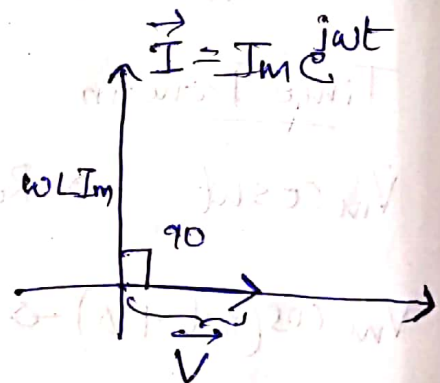 I⃗ = Im e^jωt
ωLIm
90
V⃗